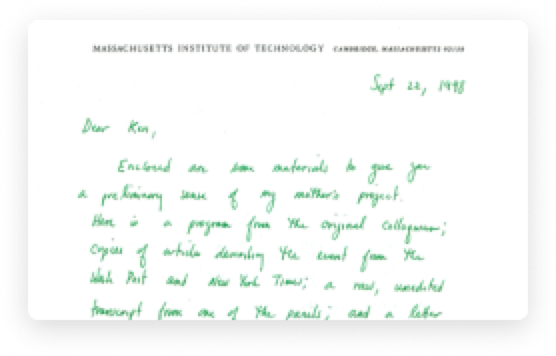 MASSACHUSETTS INSTITUTE OF TECHNOLOGY CAMBRIDGE, MASSACHUSETTS 02139
Sept 22, 1998
Dear Ken,
Enclosed are some materials to give you
a preliminary sense of my mother's project.
Here is a program from the original colloquium;
copies of articles describing the event from the
Wash Post and New York Times; a raw, unedited
transcript from one of the panels; and a letter